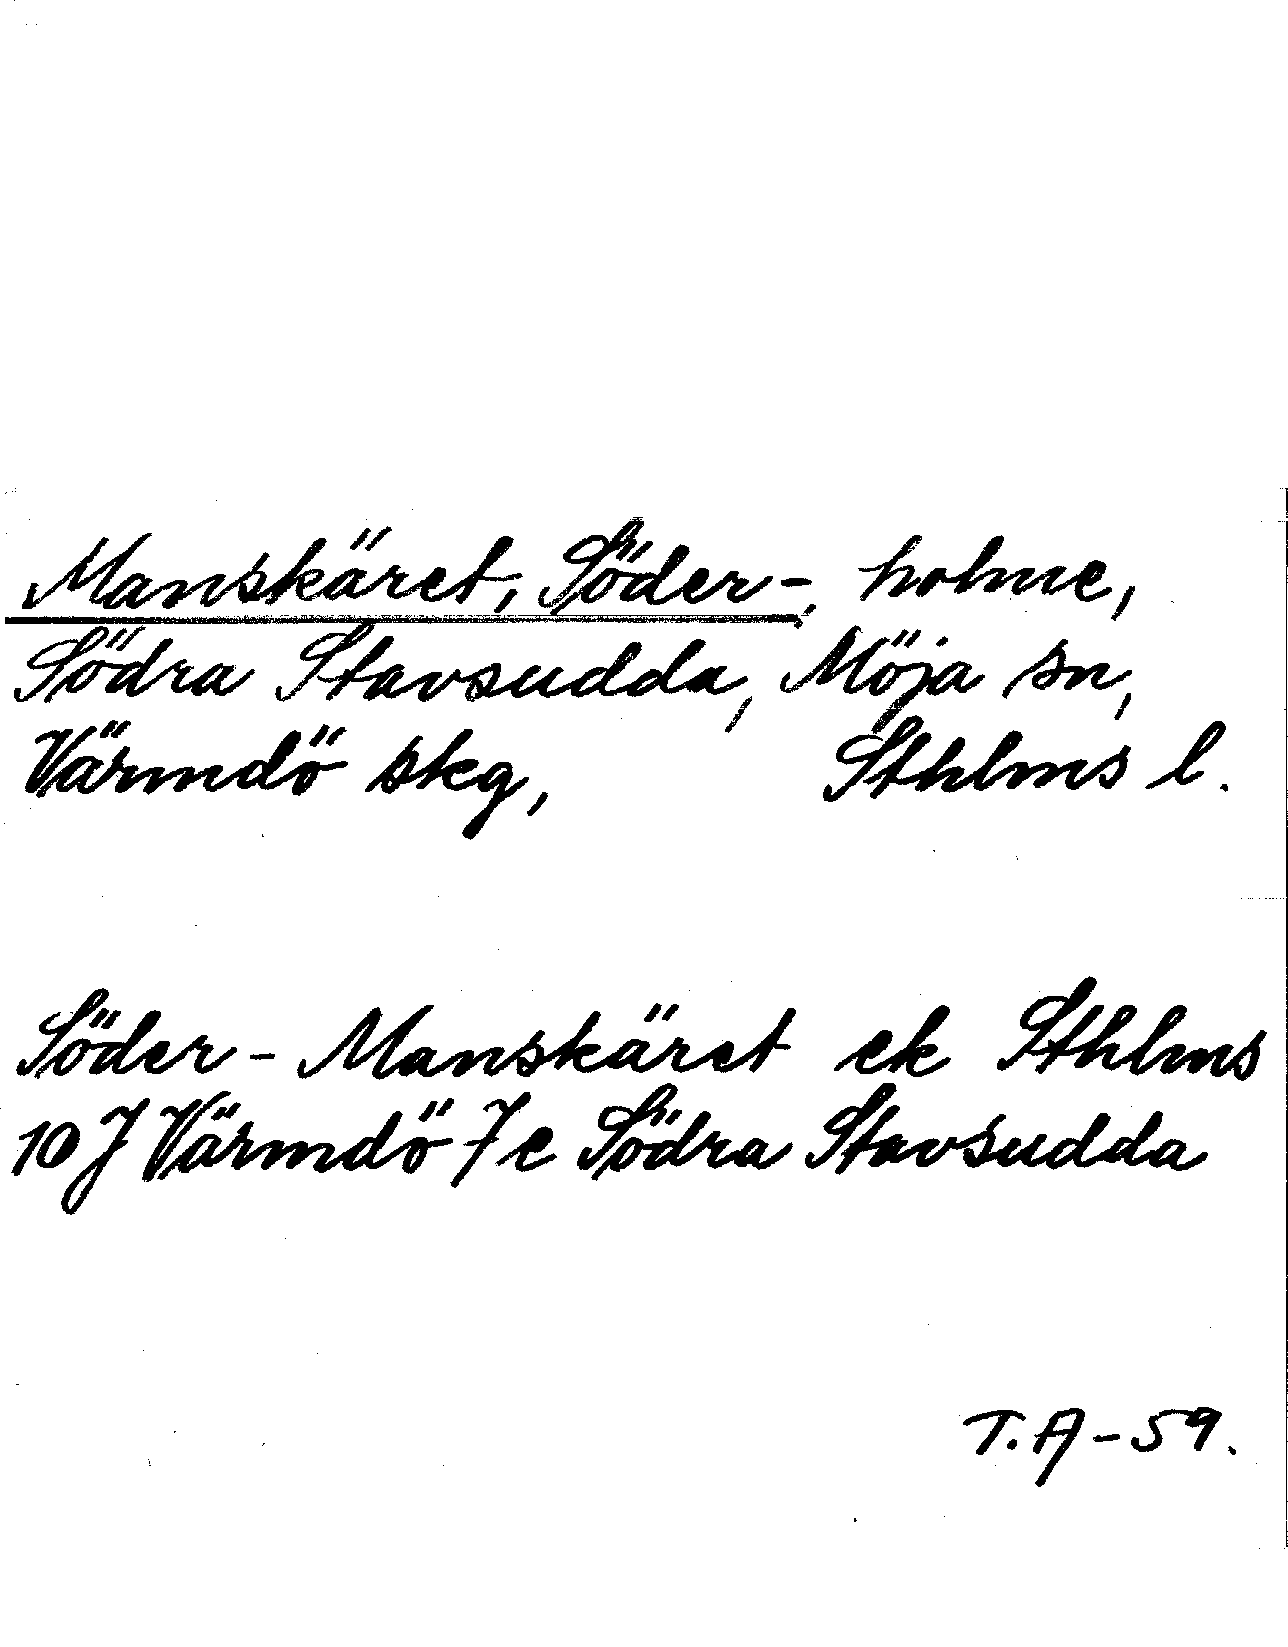 Manskäret, Söder-, holme,
Södra Stavsudda, Möja sn,
Värmdö skg, Sthlms l.
Söder-Manskäret ek Sthlms
10 J Värmdö 7e Södra Stavsudda
T.A-59.